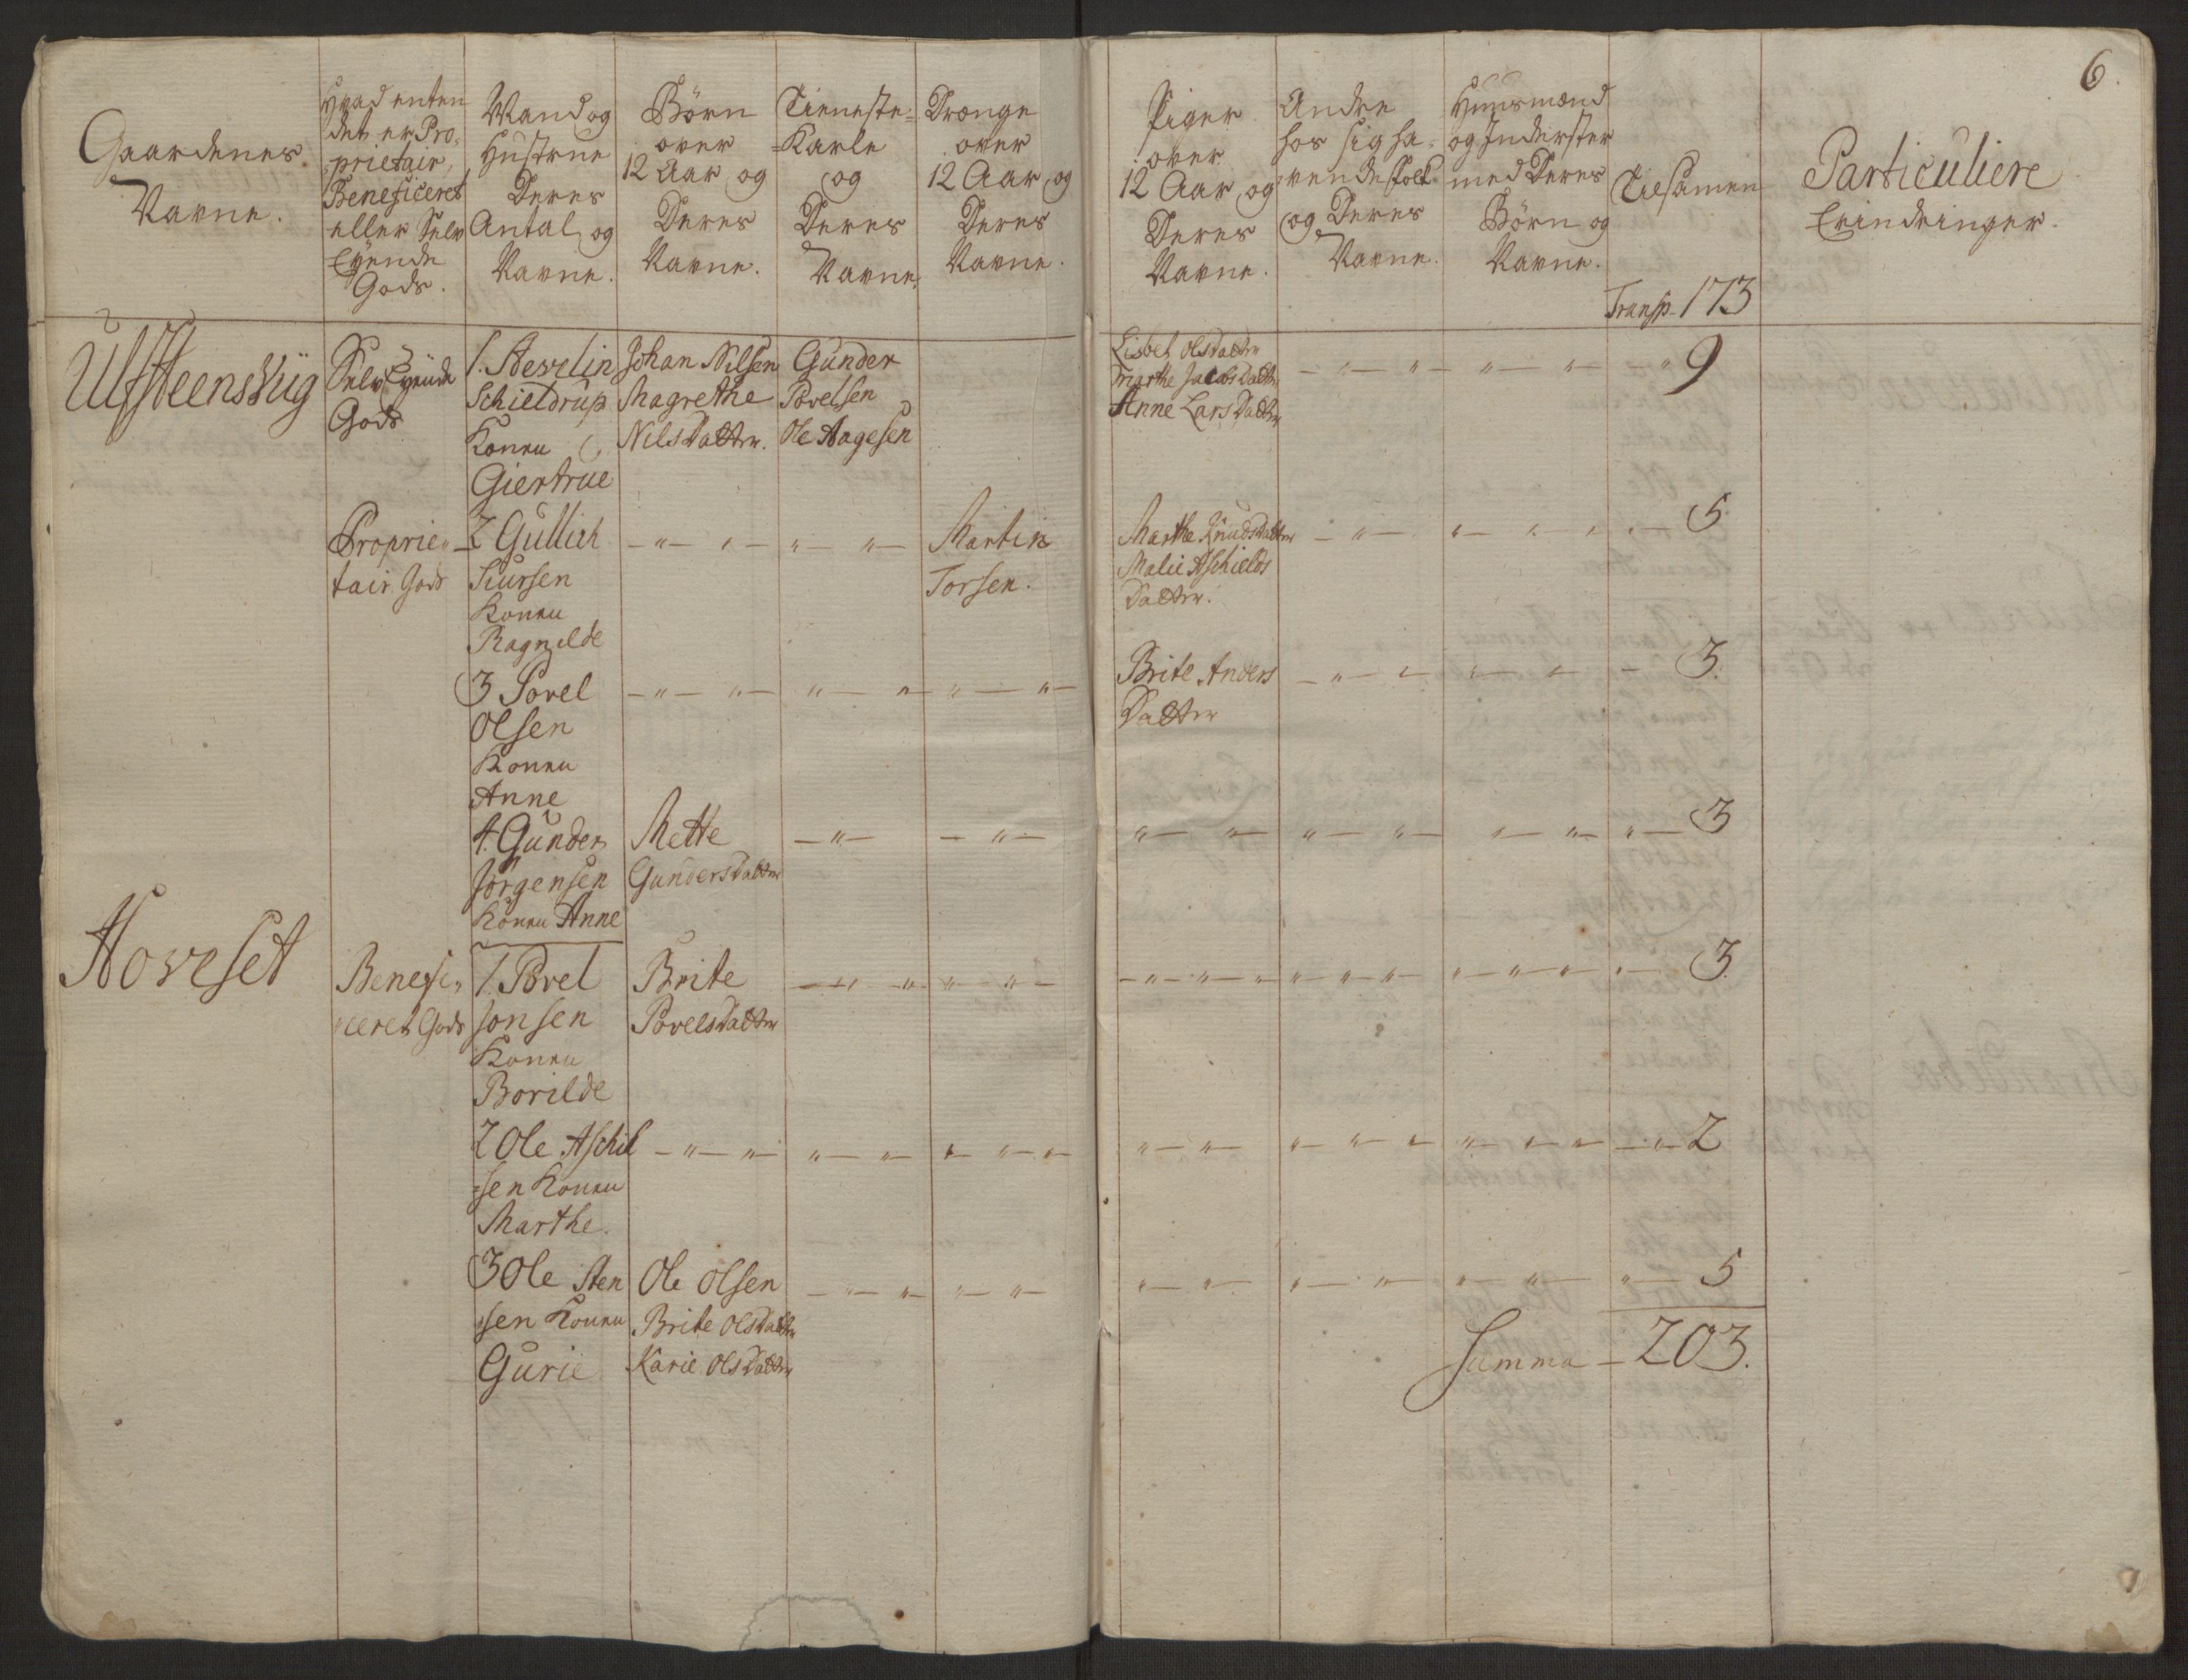 6.
Gaardenes
Navne.
Hvad enten
det er Pro-
prietair,
Beneficeret
eller Selv
Eyende
Gods.
Mand og
Hustrue
Deres
Antal og
Navne.
Børn
over
12 Aar og
Deres
Navne.
Tieneste-
Karle
og
Deres
Navne.
Drænge
over
12 Aar og
Deres
Navne.
Piger
over
12 Aar og
Deres
Navne.
Andre
hos sig ha-
vende Folk
og Deres
Navne.
Huusmænd
og Inderster
med Deres
Børn og
Navne.
Tilsamen
Particuliere
Erindringer.
Transp. 173
Ulfsteensvüg
Selv Eyende
Gods
1.
Schieldrup
Konen
Giertrue
Johan Nilsen
Magrethe
Nils Datter.
Gunder
Povelsen
Ole Aagesen
Lisbet Olsdatter
Marthe Jacobs Datter
Anne Lars Datter
9
Proprie-
tair Gods
2 Gullich
Siursen
Konen
Ragnilde
Martin
Torsen.
Marthe Knudsdatter
Malie Aschields
Datter.
5
3 Povel
Olsen
Konen
Anne
Brite Anders
Datter
3.
4. Gunder
Jørgensen
Konen Anne
Mette
Gundersdatter
3
Hoveset
Benefi-
ceret Gods
1. Povel
Jonsen
Konen
Borilde
Brite
Povelsdatter
3.
2 Ole Aschil
sen Konen
Marthe.
2
3 Ole Sten
sen Konen
Gurie
Ole Olsen
Brite Olsdatter
Karie Olsdatter
5
Summa - 203.